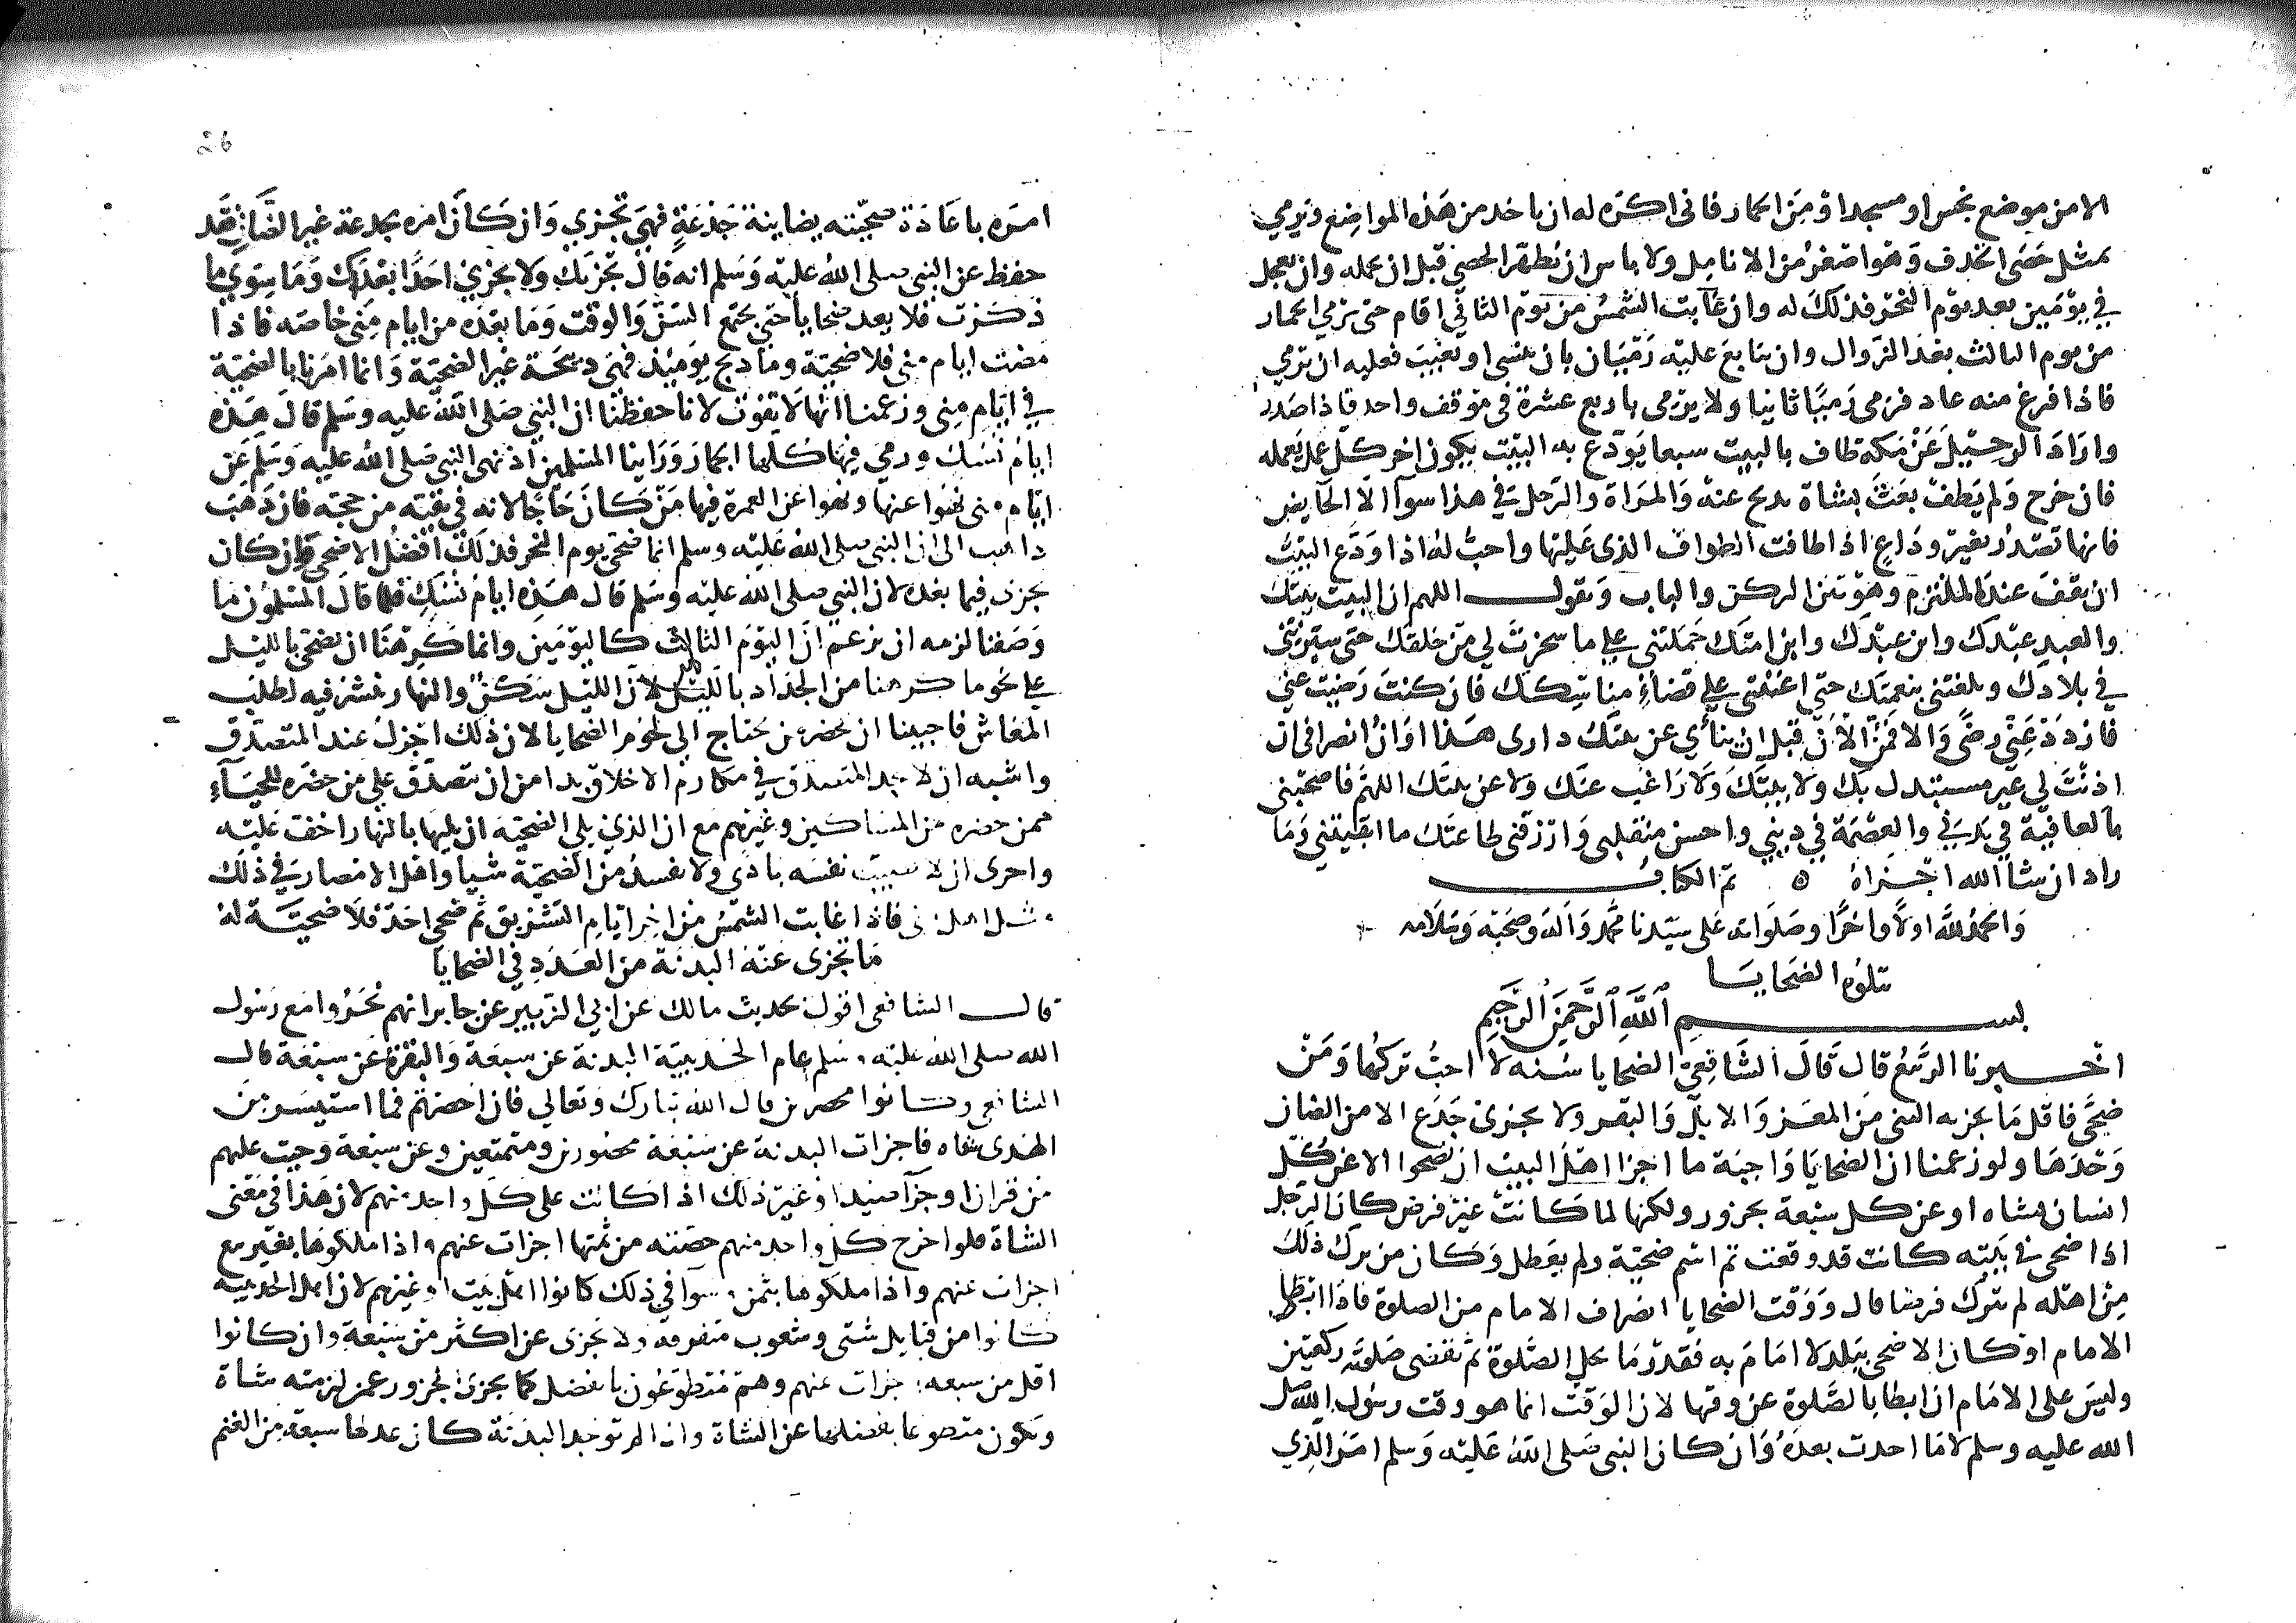 الا من موضع نجس او مسجد او من الجمار فانى اكره له ان ياخد من هذه المواضع ويرمي
بمثل حصى الخدف وهو اصغر من الانامل ولا باس ان يُطهر الحصى قبل ان يحمله وان تعجل
في يومين بعد يوم النحر فذلك له وان غابت الشمس من يوم الثاني اقام حتى يرمي الجمار
من يوم الثالث بعد الزوال وان تتابع عليه رميان بان ينسى او يغيب فعليه ان يرمي
فاذا فرغ منه عاد فرمى رميا ثانيا ولا يرمى باربع عشرة في موقف واحد فاذا صدر
واراد الرحيل عن مكة طاف بالبيت سبعا يودع به البيت يكون اخر كل عمل يعمله
فان خرج ولم يطف بعث بشاة تدبح عنه والمراة والرجل في هذا سوآ الا الحايض
فانها تصدر بغير وداع اذا طافت الطواف الذى عليها واحب له اذا ودع البيت
ان يقف عند الملتزم وهو بين الركن والباب ويقول اللهم ان البيت بيتك
والعبد عبدك وابن عبدك وابن امتك حملتنى على ما سخرت لي من خلقك حتى سيرتنى
في بلادك وبلغتنى بنعمتك حتى اعنتنى على قضاء مناسكك فان كنت رضيت عني
فازدد عني رضى والا فمن الان قبل ان ينأي عن بيتك دارى هذا اوان انصرافى ان
اذنت لي غير مستبدل بك ولا ببيتك ولا راغب عنك ولا عن بيتك اللهم فاصحبنى
بالعافية في بدني والعصمة في ديني واحسن منقلبى وارزقنى طاعتك ما ابقيتني وما
زاد ان شا الله اجزاه ه تم الكتاب
والحمد لله اولا واخرا وصلواته على سيدنا محمد واله وصحبه وسلامه
تتلوه الضحايا
بسم الله الرحمن الرحيم
اخبرنا الربيع قال قال الشافعي الضحايا سنه لا احب تركها ومن
ضحى فاقل ما يجزيه الثنى من المعز والابل والبقر ولا يجزى جذع الا من الضان
وحدها ولو زعمنا ان الضحايا واجبة ما اجزا اهل البيت ان يضحوا الا عن كل
انسان بشاه او عن كل سبعة بجزور ولكنها لما كانت غير فرض كان الرجل
اذا ضحى في بيته كانت قد وقعت ثم اسم ضحية ولم يعطل وكان من ترك ذلك
من اهله لم يترك فرضا قال ووقت الضحايا انصراف الامام من الصلوة فاذا ابطا
الامام او كان الاضحى ببلد لا امام به فقدر ما تحل الصلوة ثم تقضى صلوته ركعتين
وليس على الامام ان ابطا بالصلوة عن وقتها لان الوقت انما هو وقت رسول الله صل
الله عليه وسلم لا ما احدث بعده وان كان النبي صلى الله عليه وسلم امر الذي
26
امره باعادة ضحيته بضاينة جذعة فهي تجزي وان كان امره بجدعة غير الضان فقد
حفظ عن النبي صلى الله عليه وسلم انه قال تجزيك ولا يجزي احدا بعدك وما سوي ما
ذكرت فلا يعد ضحايا حتى يجتمع السن والوقت وما بعده من ايام منى خاصه فاذا
مضت ايام منى فلا ضحية وما دبح يوميذ فهى دبيحة غير الضحية وانما امرنا بالضحية
في ايام منى وزعمنا انها لا تفوت لانا حفظنا ان النبي صلى الله عليه وسلم قال هذه
ايام نسك ورمي فيها كلها الجمار وراينا المسلمين اذ نهى النبي صلى الله عليه وسلم عن
ايام منى نهوا عنها ونهوا عن العمرة فيها من كان حاجا لانه في بقية من حجه فان ذهب
داهب الى ان النبي صلى الله عليه وسلم انما ضحى يوم النحر فذلك افضل الاضحى وان كان
يجزى فيما بعده لان النبي صلى الله عليه وسلم قال هذه ايام نسك فلما قال المسلمون ما
وصفنا لزمه ان يزعم ان اليوم الثالث كاليومين وانما كرهنا ان يضحى بالليل
على نحو ما كرهنا من الجداد بالليل لان الليل سكن والنهار ينشر فيه لطلب
المعاش فاحببنا ان يحضره من يحتاج الى لحوم الضحايا لان ذلك اجزل عند المتصدق
واشبه ان لا يجد المتصدق في مكارم الاخلاق بدا من ان يتصدق على من حضره للحياء
ممن حضره من المساكين وغيرهم مع ان الذي يلى الضحية ان يليها بالنهار اخف عليه
واحرى ان لا يصيب نفسه باذي ولا يفسد من الضحية شيا واهل الامصار في ذلك
مثل اهل منى فاذا غابت الشمس من اخر ايام التشريق ثم ضحى احد فلا ضحية له
ما تجزى عنه البدنة من العدد في الضحايا
قال الشافعى اقول بحديث مالك عن ابي الزبير عن جابر انهم نحروا مع رسول
الله صلى الله عليه وسلم عام الحديبية البدنة عن سبعة والبقرة عن سبعة قال
الشافعي وكانوا محصرين قال الله تبارك وتعالى فان احصرتم فما استيسر من
الهدى شاه فاجزات البدنة عن سبعة محصورين ومتمتعين وعن سبعة وجبت عليهم
من قران او جزآ صيد او غير ذلك اذا كانت على كل واحد منهم لان هذا في معنى
الشاة فلو اخرج كل واحد منهم حصته من ثمنها اجزات عنهم واذا ملكوها بغير بيع
اجزات عنهم واذا ملكوها بثمن وسوآ في ذلك كانوا اهل بيت او غيرهم لان اهل الحديبيه
كانوا من قبايل شتى وشعوب متفرقه ولا تجزى عن اكثر من سبعة وان كانوا
اقل من سبعه اجزات عنهم وهم متطوعون بالفضل كما يجزى الجزور عمن لزمته شاة
ويكون متطوعا بفضلها عن الشاة واذا لم توجد البدنة كان عدلها سبعة من الغنم